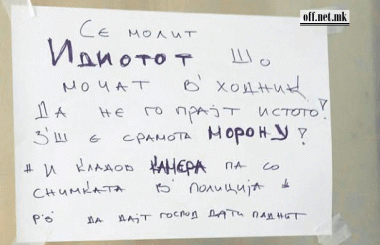 off.net.mk
СЕ МОЛИТ
ИДИОТОТ ШО
МОЧАТ В'ХОДНИК
ДА НЕ ГО ПРАЈТ ИСТОТО!
З'Ш Е СРАМОТА МОРОНУ?
# И КЛАДОВ КАМЕРА ПА СО
СНИМКАТА В'ПОЛИЦИЈА #
Р'О ДА ДАЈТ ГОСПОД ДАТИ ПАДНИТ